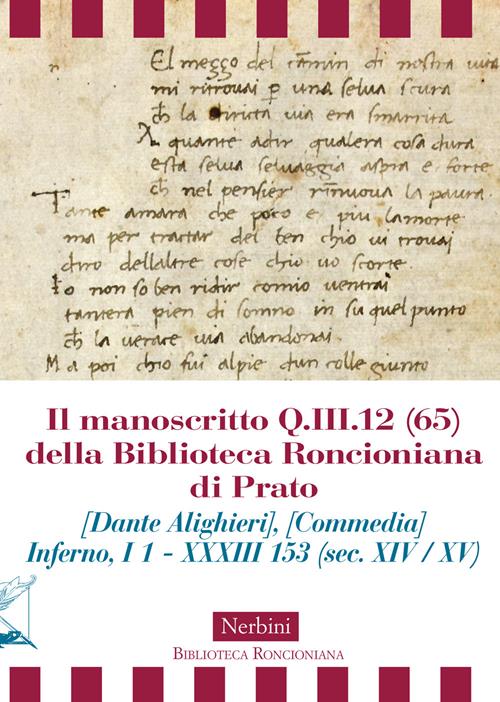 El meggo del cāmin di nostra uita
mi ritrouai ꝑ una selua scura
ch̄ la diricta uia era smarrita
A quante adir qualera cosa dura
esta selua seluaggia aspra e forte
ch̄ nel pensier rīnuoua la paura
Tante amara che poco e piu lamorte
ma per tractar del ben chio ui trouai
diro dellaltre cose chio uo scorte
Io non so ben ridir comio uentrai
tantera pien di somno in su quel punto
ch̄ la uerace uia abandonai
Ma poi chio fui alpie dun colle giunto
Il manoscritto Q.III.12 (65)
della Biblioteca Roncioniana
di Prato
[Dante Alighieri], [Commedia]
Inferno, I 1 - XXXIII 153 (sec. XIV / XV)
Nerbini
BIBLIOTECA RONCIONIANA